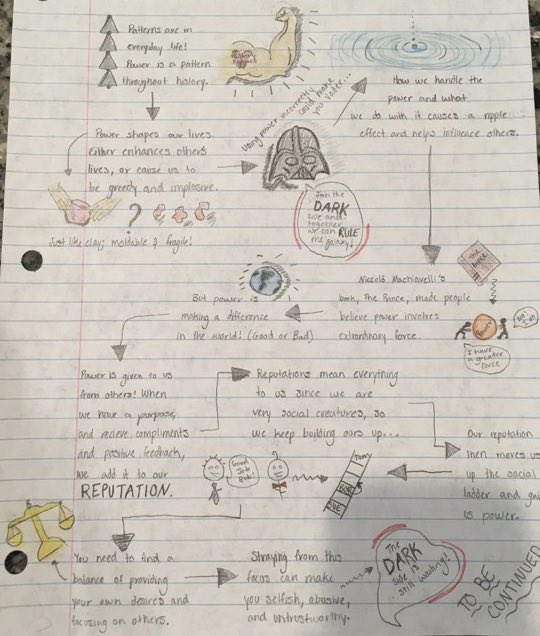 Patterns are in
everyday life!
Power is a pattern
throughout history.
Power shapes our lives.
Either enhances others
lives, or cause us to
be greedy and implosive.
Just like clay; moldable & fragile!
?
Using power incorrectly
could make
you Vader...
Join the
DARK
side and
together
we can RULE
the galaxy!
How we handle the
power and what
we do with it causes a ripple
effect and helps influence others.
Niccolò Machiavelli's
book, The Prince, made people
believe power involves
extrordinary force.
The Prince
Power
No! I do
I have
a greater
force
But power is
making a difference
in the world! (Good or Bad)
Power is given to us
from others! When
we have a purpose,
and recieve compliments
and positive feedback,
we add it to our
REPUTATION.
Reputations mean everything
to us since we are
very social creatures, so
we keep building ours up...
Good
Job
Bob!
Tom
Bob
Our reputation
then moves us
up the social
ladder and
us power.
You need to find a
balance of providing
your own desires and
focusing on others.
Straying from this
focus can make
you selfish, abusive,
and untrustworthy.
The
DARK
side is
still waiting!
TO BE
CONTINUED